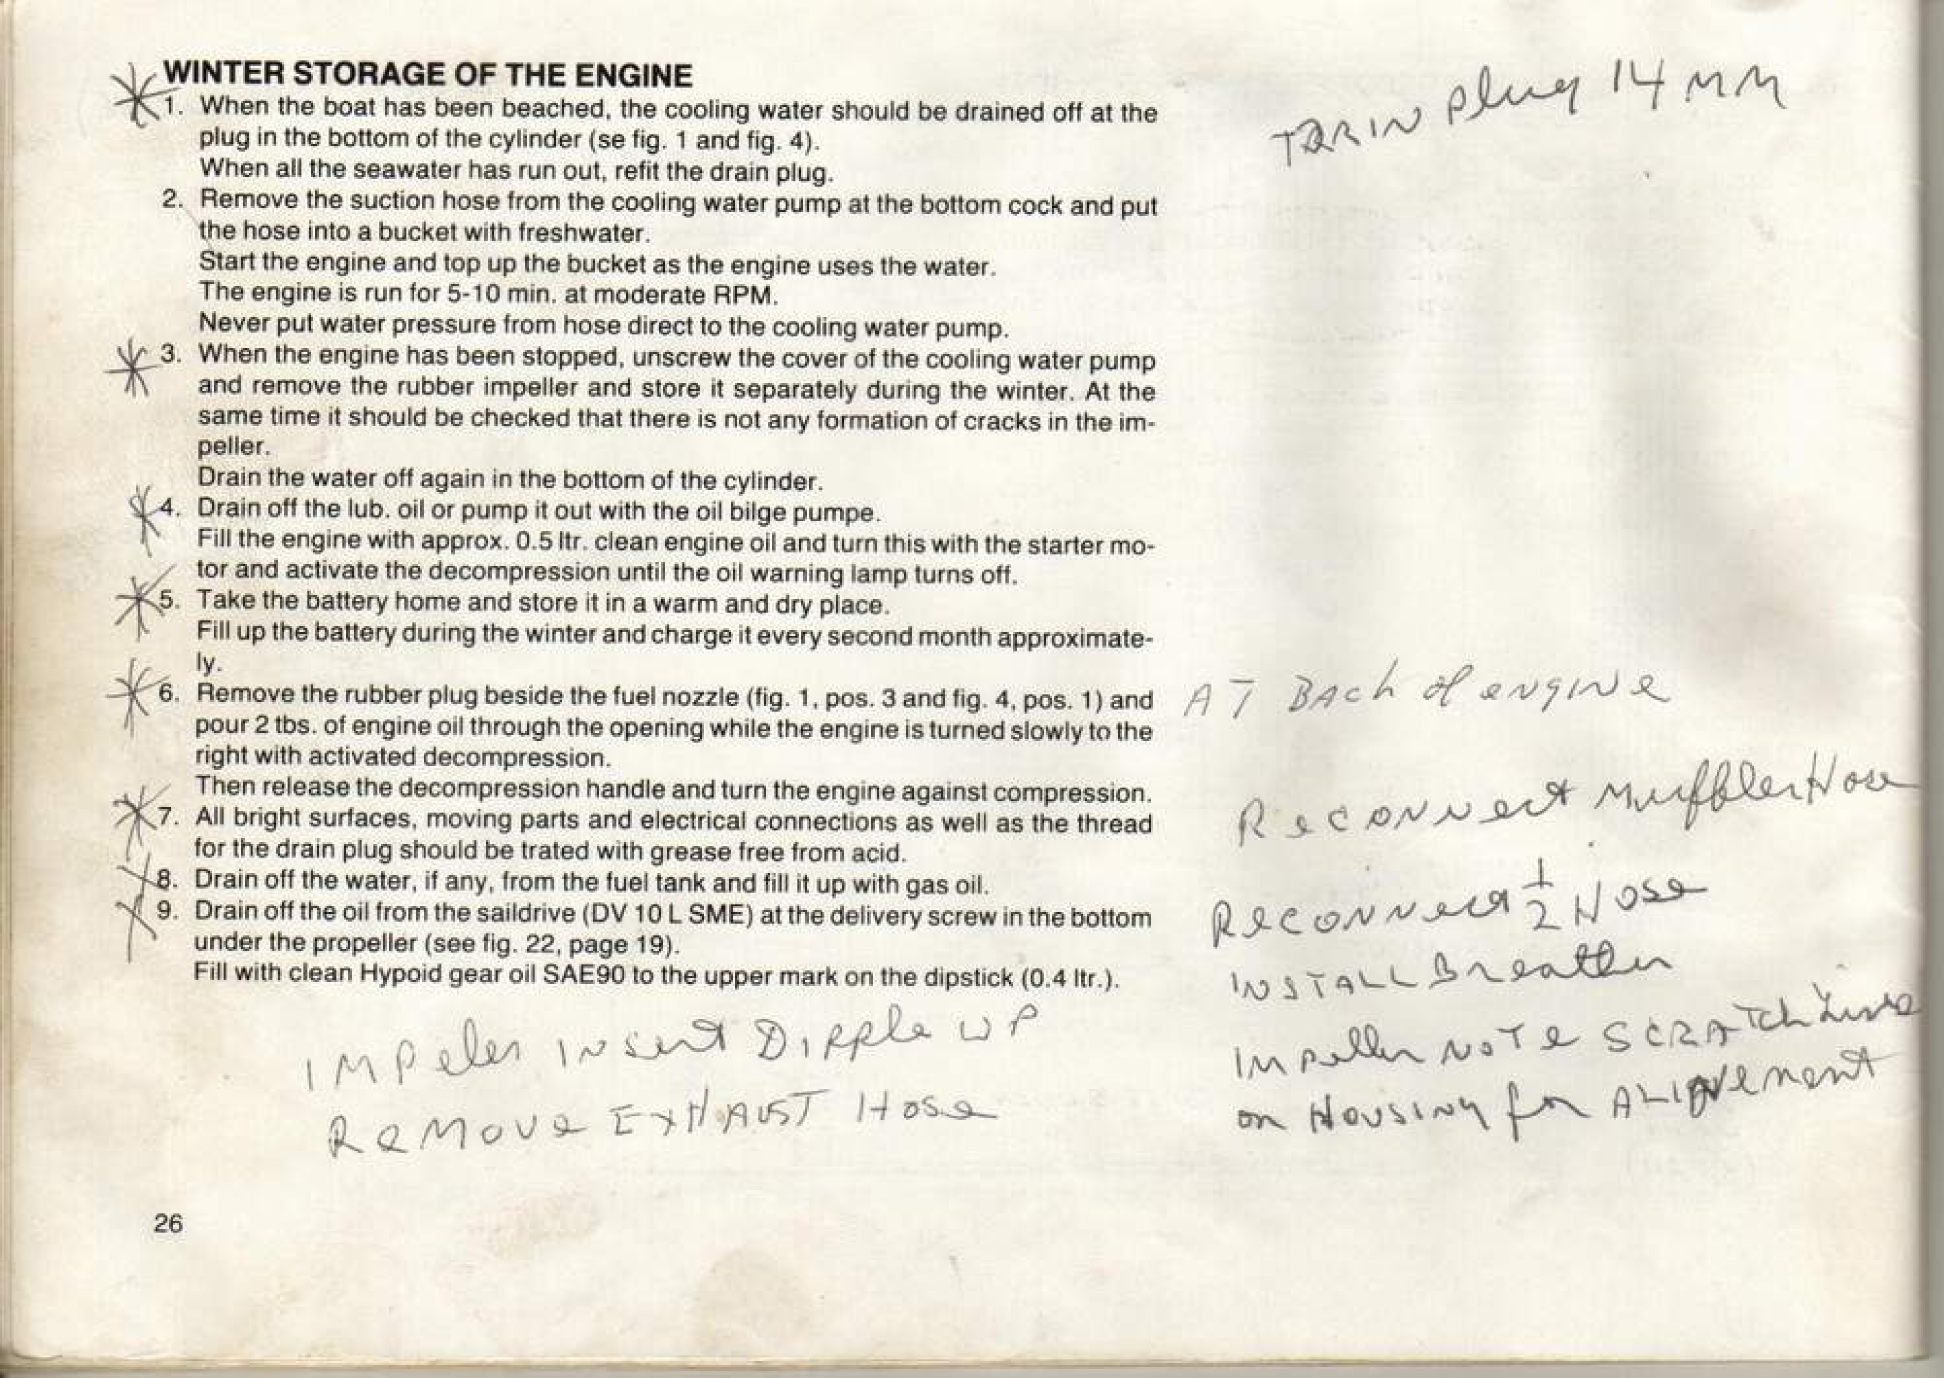 WINTER STORAGE OF THE ENGINE
1. When the boat has been beached, the cooling water should be drained off at the
plug in the bottom of the cylinder (se fig. 1 and fig. 4).
When all the seawater has run out, refit the drain plug.
2. Remove the suction hose from the cooling water pump at the bottom cock and put
the hose into a bucket with freshwater.
Start the engine and top up the bucket as the engine uses the water.
The engine is run for 5-10 min. at moderate RPM.
Never put water pressure from hose direct to the cooling water pump.
3. When the engine has been stopped, unscrew the cover of the cooling water pump
and remove the rubber impeller and store it separately during the winter. At the
same time it should be checked that there is not any formation of cracks in the im-
peller.
Drain the water off again in the bottom of the cylinder.
4. Drain off the lub. oil or pump it out with the oil bilge pumpe.
Fill the engine with approx. 0.5 ltr. clean engine oil and turn this with the starter mo-
tor and activate the decompression until the oil warning lamp turns off.
5. Take the battery home and store it in a warm and dry place.
Fill up the battery during the winter and charge it every second month approximate-
ly.
6. Remove the rubber plug beside the fuel nozzle (fig. 1, pos. 3 and fig. 4, pos. 1) and
pour 2 tbs. of engine oil through the opening while the engine is turned slowly to the
right with activated decompression.
Then release the decompression handle and turn the engine against compression.
7. All bright surfaces, moving parts and electrical connections as well as the thread
for the drain plug should be trated with grease free from acid.
8. Drain off the water, if any, from the fuel tank and fill it up with gas oil.
9. Drain off the oil from the saildrive (DV 10 L SME) at the delivery screw in the bottom
under the propeller (see fig. 22, page 19).
Fill with clean Hypoid gear oil SAE90 to the upper mark on the dipstick (0.4 ltr.).
IMPeler INSert DIPPle UP
ReMove EXHAUST Hose
26
plug 14 MM
AT BAck of engine
ReCONNect MufflerHose
ReCONNect 1/2 Hose
INSTALL Breather
IMpeller NOTe SCRATCh Line
on HousiNg for ALIGNement